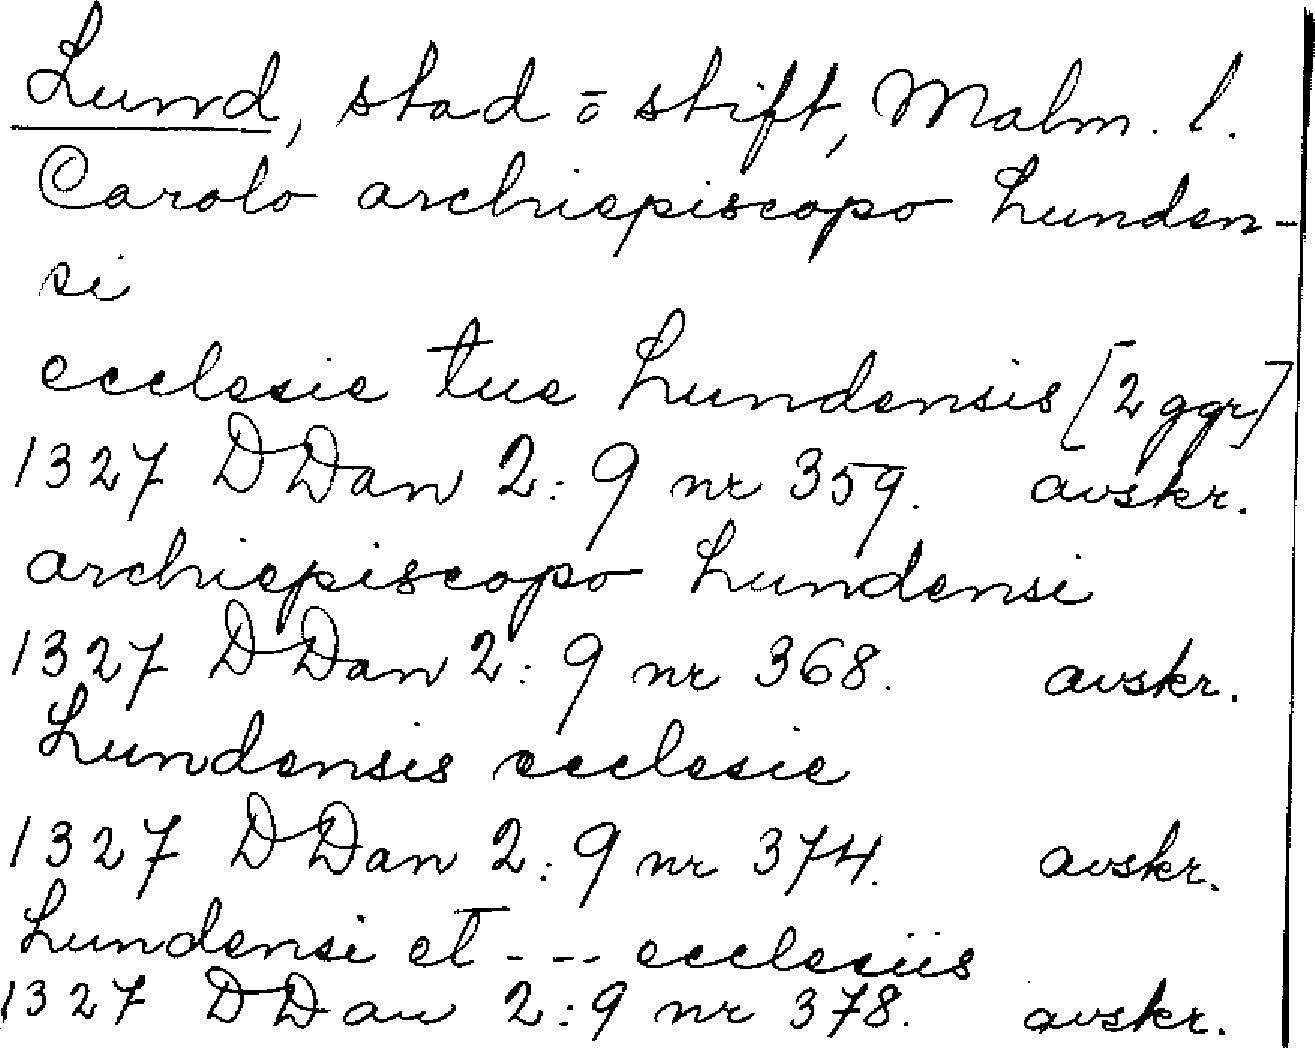 Lund, stad o stift, Malm. l.
Carolo archiepiscopo Lunden-
si
ecclesie tue Lundensis [2 ggr]
1327 DDan 2:9 nr 359. avskr.
archiepiscopo Lundensi
1327 DDan 2:9 nr 368. avskr.
Lundensis ecclesie
1327 DDan 2:9 nr 374. avskr.
Lundensi et --- ecclesiis
1327 DDan 2:9 nr 378. avskr.